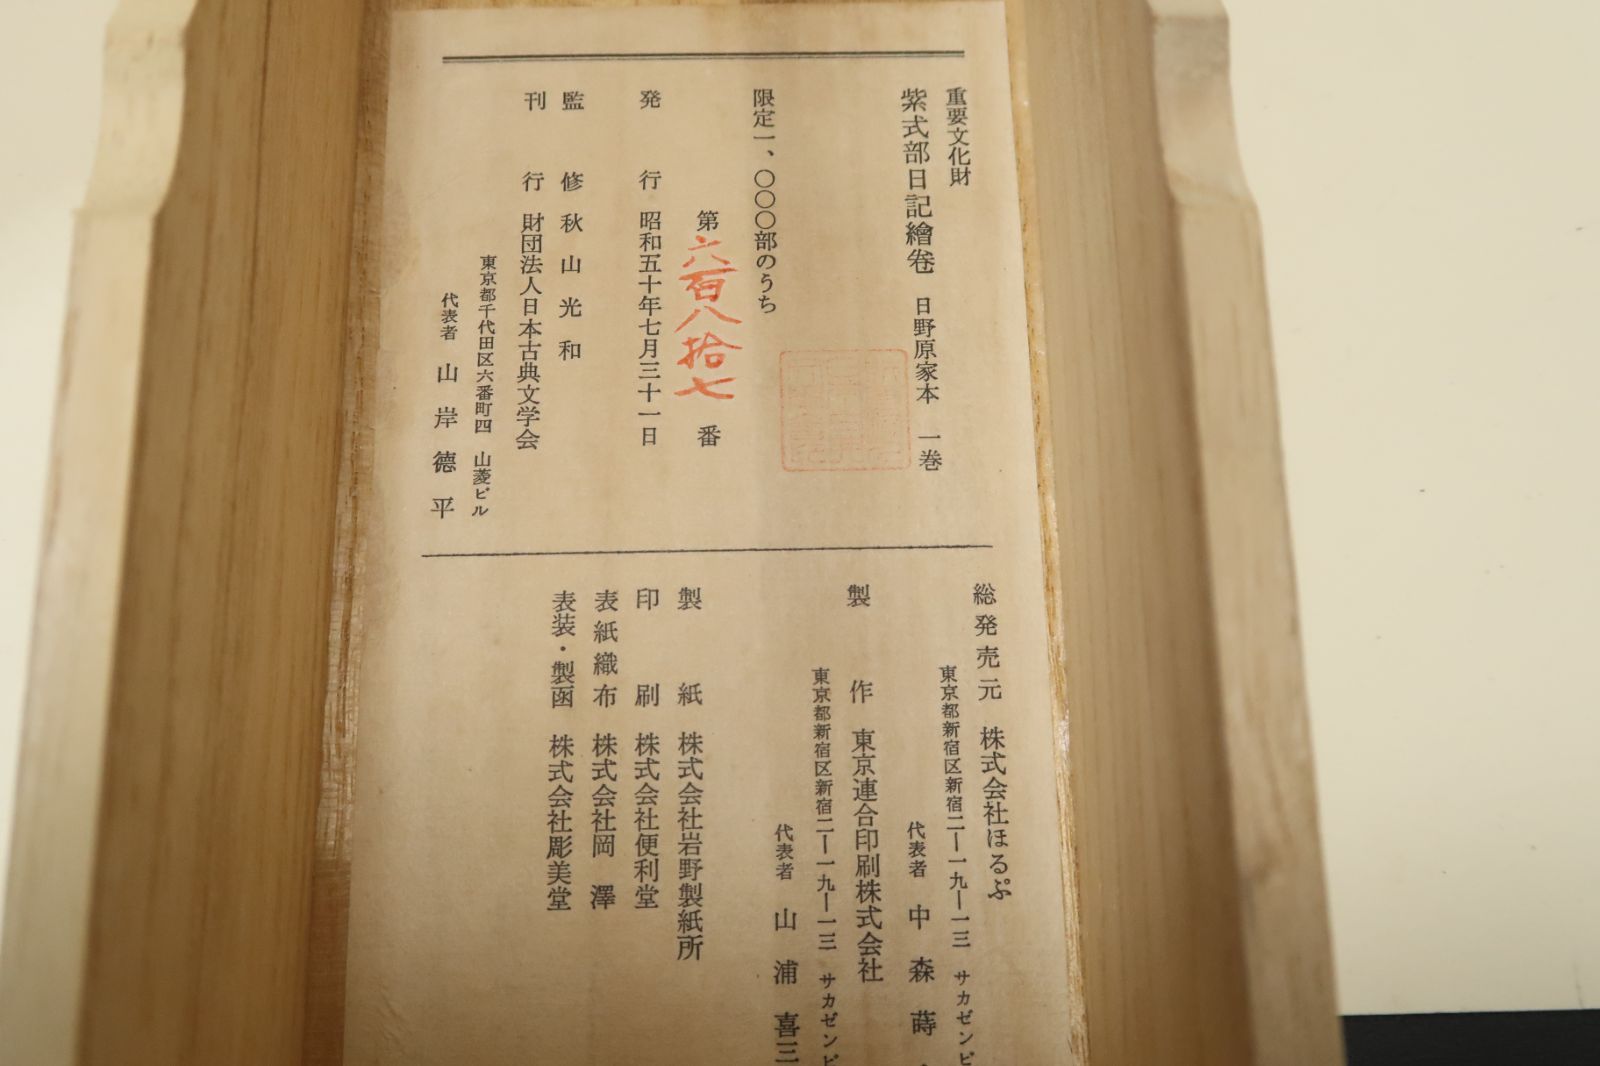 重要文化財
紫式部日記繪巻 日野原家本 一巻
限定一、〇〇〇部のうち
第六百八拾七番
発行 昭和五十年七月三十一日
監修 秋山光和
刊行 財団法人日本古典文学会
東京都千代田区六番町四 山菱ビル
代表者 山岸德平
総発売元 株式会社ほるぷ
東京都新宿区新宿二ー一九ー一三 サカゼンビ
代表者 中森蒔
製作 東京連合印刷株式会社
東京都新宿区新宿二ー一九ー一三 サカゼンビ
代表者 山浦喜三
製紙 株式会社岩野製紙所
印刷 株式会社便利堂
表紙織布 株式会社岡澤
表装・製函 株式会社彫美堂